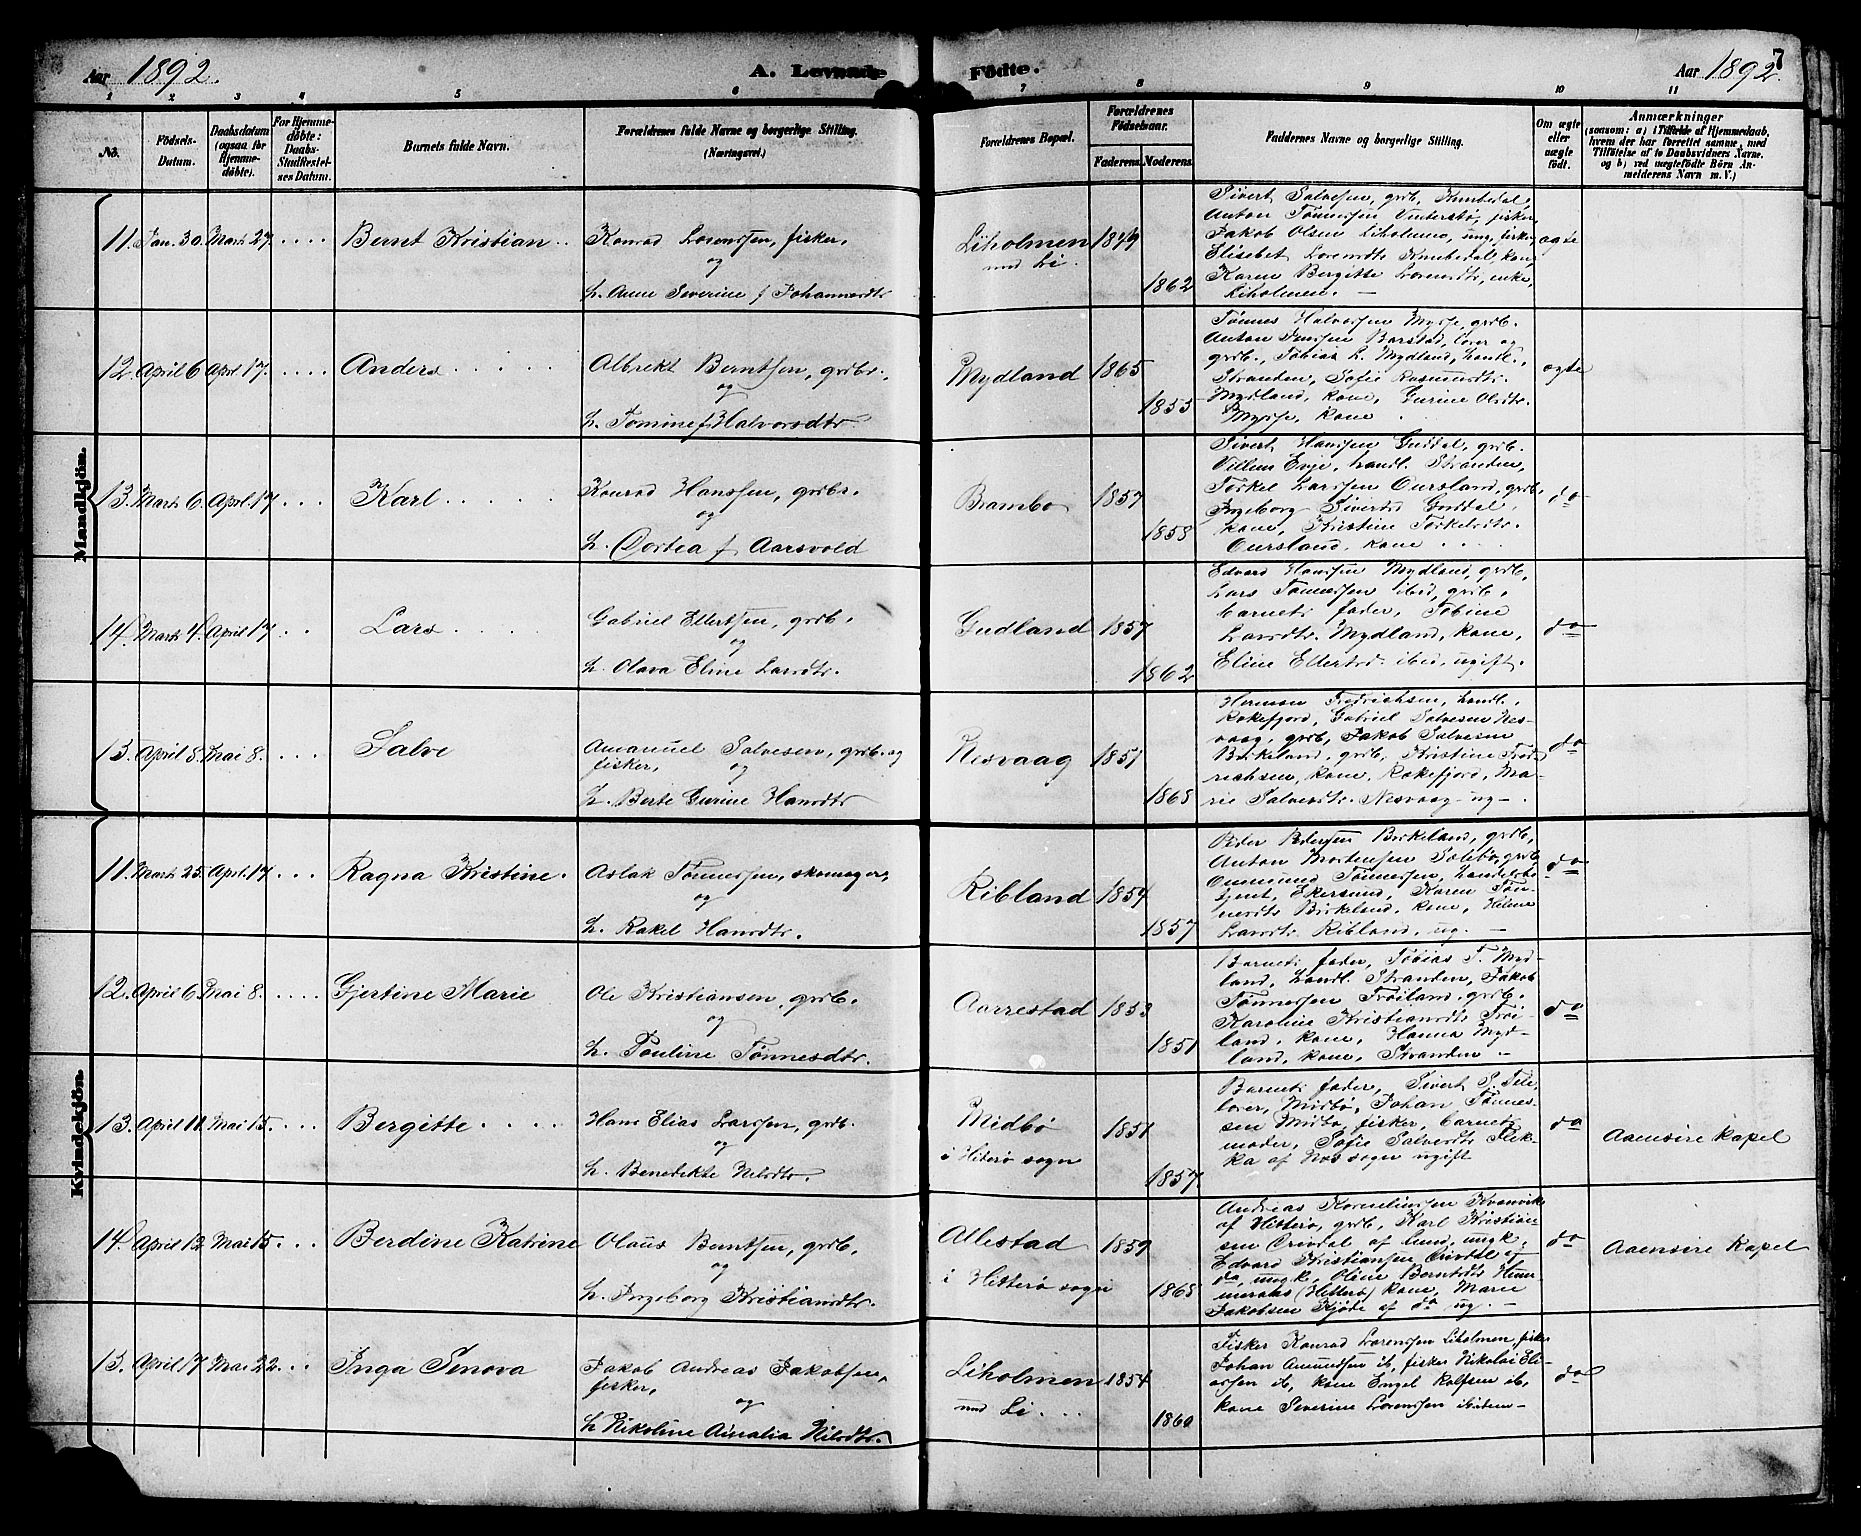 Aar 1892. A. Levende Fødte. Aar 1892. 7
1 2 3 4 5 6 7 8 9 10 11
No.
Födsels-Datum.
Daabsdatum (ogsaa for Hjemmedöbte).
For Hjemmedöbte: Daabs-Stadfæstelses Datum.
Barnets fulde Navn.
Forældrenes fulde Navne og borgerlige Stilling.
(Næringsvei.)
Forældrenes Bopæl.
Forældrenes Födselsaar.
Faderens. Moderens.
Faddernes Navne og borgerlige Stilling.
Om ægte eller uægte födt.
Anmærkninger
(saasom: a) i Tilfælde af Hjemmedaab,
hvem der har forrettet samme, med
Tilföielse af to Daabsvidners Navne.
og b) ved uægtefödte Börn An-
melderens Navn m. V.)
Mandkjön.
11. Jan. 30. Marts 27. .... Bernt Kristian ..
Konrad Lorentsen, fisker,
og
h. Anne Severine f Johannesdtr
Liholmen
und Li.
1849
1862
Sivert Salvesen, grdb,
Anton Tønnessen Vinterstø, fisker,
Jakob Olsen Liholmen, ung, fisker,
Elisebet Lorentsdtr kone,
Karen Bergitte Lorentsdtr, enke,
Liholmen. —
ægte
12. April 6 April 17. .... Anders .....
Albrekt Berntsen, grdbr.,
og
h. Tomine f. Halvorsdtr.
Mydland
1865
1855
Tønnes Halvorsen Mysse, grdb.
Anton Barstad, lærer og
grdb., Tobias L. Mydland, handl.,
Stranden, Sofie Rasmusdtr.
Mydland, kone, Gurine Olsdtr.
Mysse, kone .
ægte
13. Marts 6. April 17 ... Karl .....
Konrad Hanssen, grdbr.
og
h. Dortea f. Aarsvold
Brambo
1857
1858
Sivert Hanssen Guddal, grdb.
Villem Evje, handl. Stranden,
Torkel Larssen Oursland, grdb,
Ingeborg Sivertsd Guddal,
kone, Kristine Torkelsdtr.
Oursland, kone ....
do
14. Marts 4. April 17 ... Lars .....
Gabriel Ellertsen, grdb.
og
h. Olava Eline Larsdtr.
Gudland
1857
1862
Edvard Hanssen Mydland, grdb,
Lars Tønnessen ibid, grdb,
barnets fader, Tobine
Larsdtr. Mydland, kone,
Eline Ellertsd. ibid, ugift.
do
15. April 8. Mai 8. ... Salve
Amanuel Salvesen, grdb. og
fisker, og
h. Berte Gurine Hansdtr
Nesvaag
1851
1868
Herman Fredrichsen, handl.,
Rækefjord, Gabriel Salvesen Nes-
vaag, grdb, Jakob Salvesen
Birkeland, grdb, Kristine Fred-
richsen, kone, Rækefjord, Ma-
rie Salvesdtr. Nesvaag ug .
do
Kvindekjön.
11. Marts 25. April 17 ... Ragna Kristine.
Aslak Tønnessen, skomager,
og
h. Rakel Hansdtr.
Ribland
1854
1857
Peder Pedersen Birkeland, grdb,
Anton Mortensen grdb,
Ommund Tønnessen, handelsbe-
tjent, Ekersund, Karen Tøn-
nesdtr Birkeland, kone, Helene
Larsdtr. Ribland, ug. —
do
12. April 6. Mai 8. .... Gjertine Marie
Ole Kristiansen, grdb.
og
h. Pauline Tønnesdtr.
Aarrestad
1853
1851
Barnets fader, Tobias T. Myd-
land, handl. Stranden, Jakob
Tønnessen Trøiland, grdb.
Karoline Kristiansdtr Trøi-
land, kone, Hanna Myd-
land, kone, Stranden —
do
13. April 11. Mai 15. ... Bergitte ....
Hans Elias Larssen, grdb.
og
h. Benedikte Nilsdtr.
Midbø
i Hitterø sogn
1851
1857
Barnets fader, Sivert S.
lærer, Midbø, Johan Tønnes-
sen Midbø, fisker, barnets
moder, Sofie Salvesdtr Flik-
ka af Næs sogn ugift
do
Aaensire kapel
14. April 12. Mai 15. ... Berdine Katrine
Olaus Berntsen, grdb,
og
h. Ingeborg Kristiansdtr.
Allestad
i Hitterø sogn
1859
1868
Andreas Korneliussen Kvanvik
af Hitterø, grdb, Karl Kristian-
sen af Lund, ungk,
Edvard Kristiansen af
do, ungk, Oline Berntsdtr
(Hitterø) kone, Marie
Jakobsen af do ug. —
do
Aaensire Kapel
15. April 17 Mai 22. ... Inga Senova
Jakob Andreas Jakobsen,
fisker,
og
h Nikoline Amalia Nilsdtr.
Liholmen
und Li. ...
1854
1860
Fisker Konrad Lorentssen Liholmen, fisker
Johan Amundsen ib, fisker Nikolai Eli-
assen ib, kone Engel Rolfsen ib,
kone Severine Lorentssen ibidem —
do